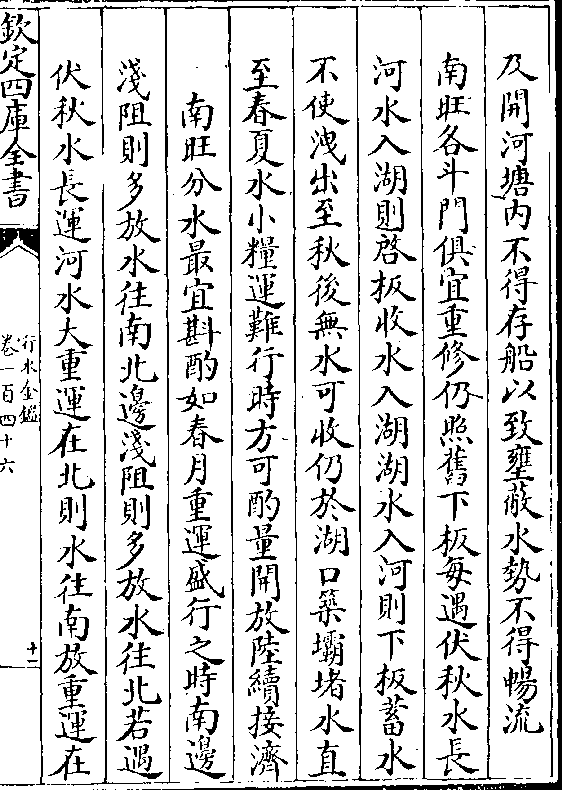 及開河塘内不得存船以致壅蔽水勢不得暢流
南旺各斗門俱宜重修仍照舊下板每遇伏秋水長
河水入湖則啓板收水入湖湖水入河則下板蓄水
不使洩出至秋後無水可收仍於湖口築壩堵水直
至春夏水小糧運難行時方可酌量開放陸續接濟
南旺分水最宜斟酌如春月重運盛行之時南邊
淺阻則多放水往南北邊淺阻則多放水往北若遇
伏秋水長運河水大重運在北則水往南放重運在
欽定四庫全書
行水金鑑
卷一百四十六
十一